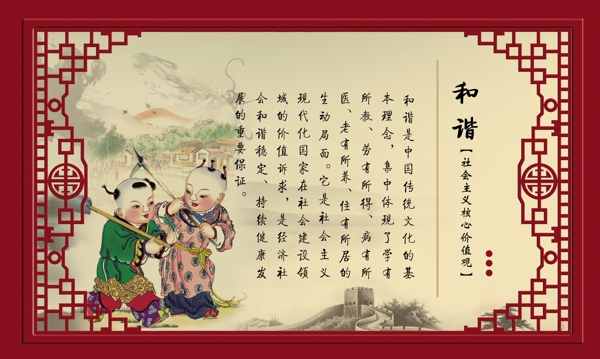 和谐
【社会主义核心价值观】
和谐是中国传统文化的基
本理念，集中体现了学有
所教、劳有所得、病有所
医、老有所养、住有所居的
生动局面。它是社会主义
现代化国家在社会建设领
域的价值诉求，是经济社
会和谐稳定、持续健康发
展的重要保证。